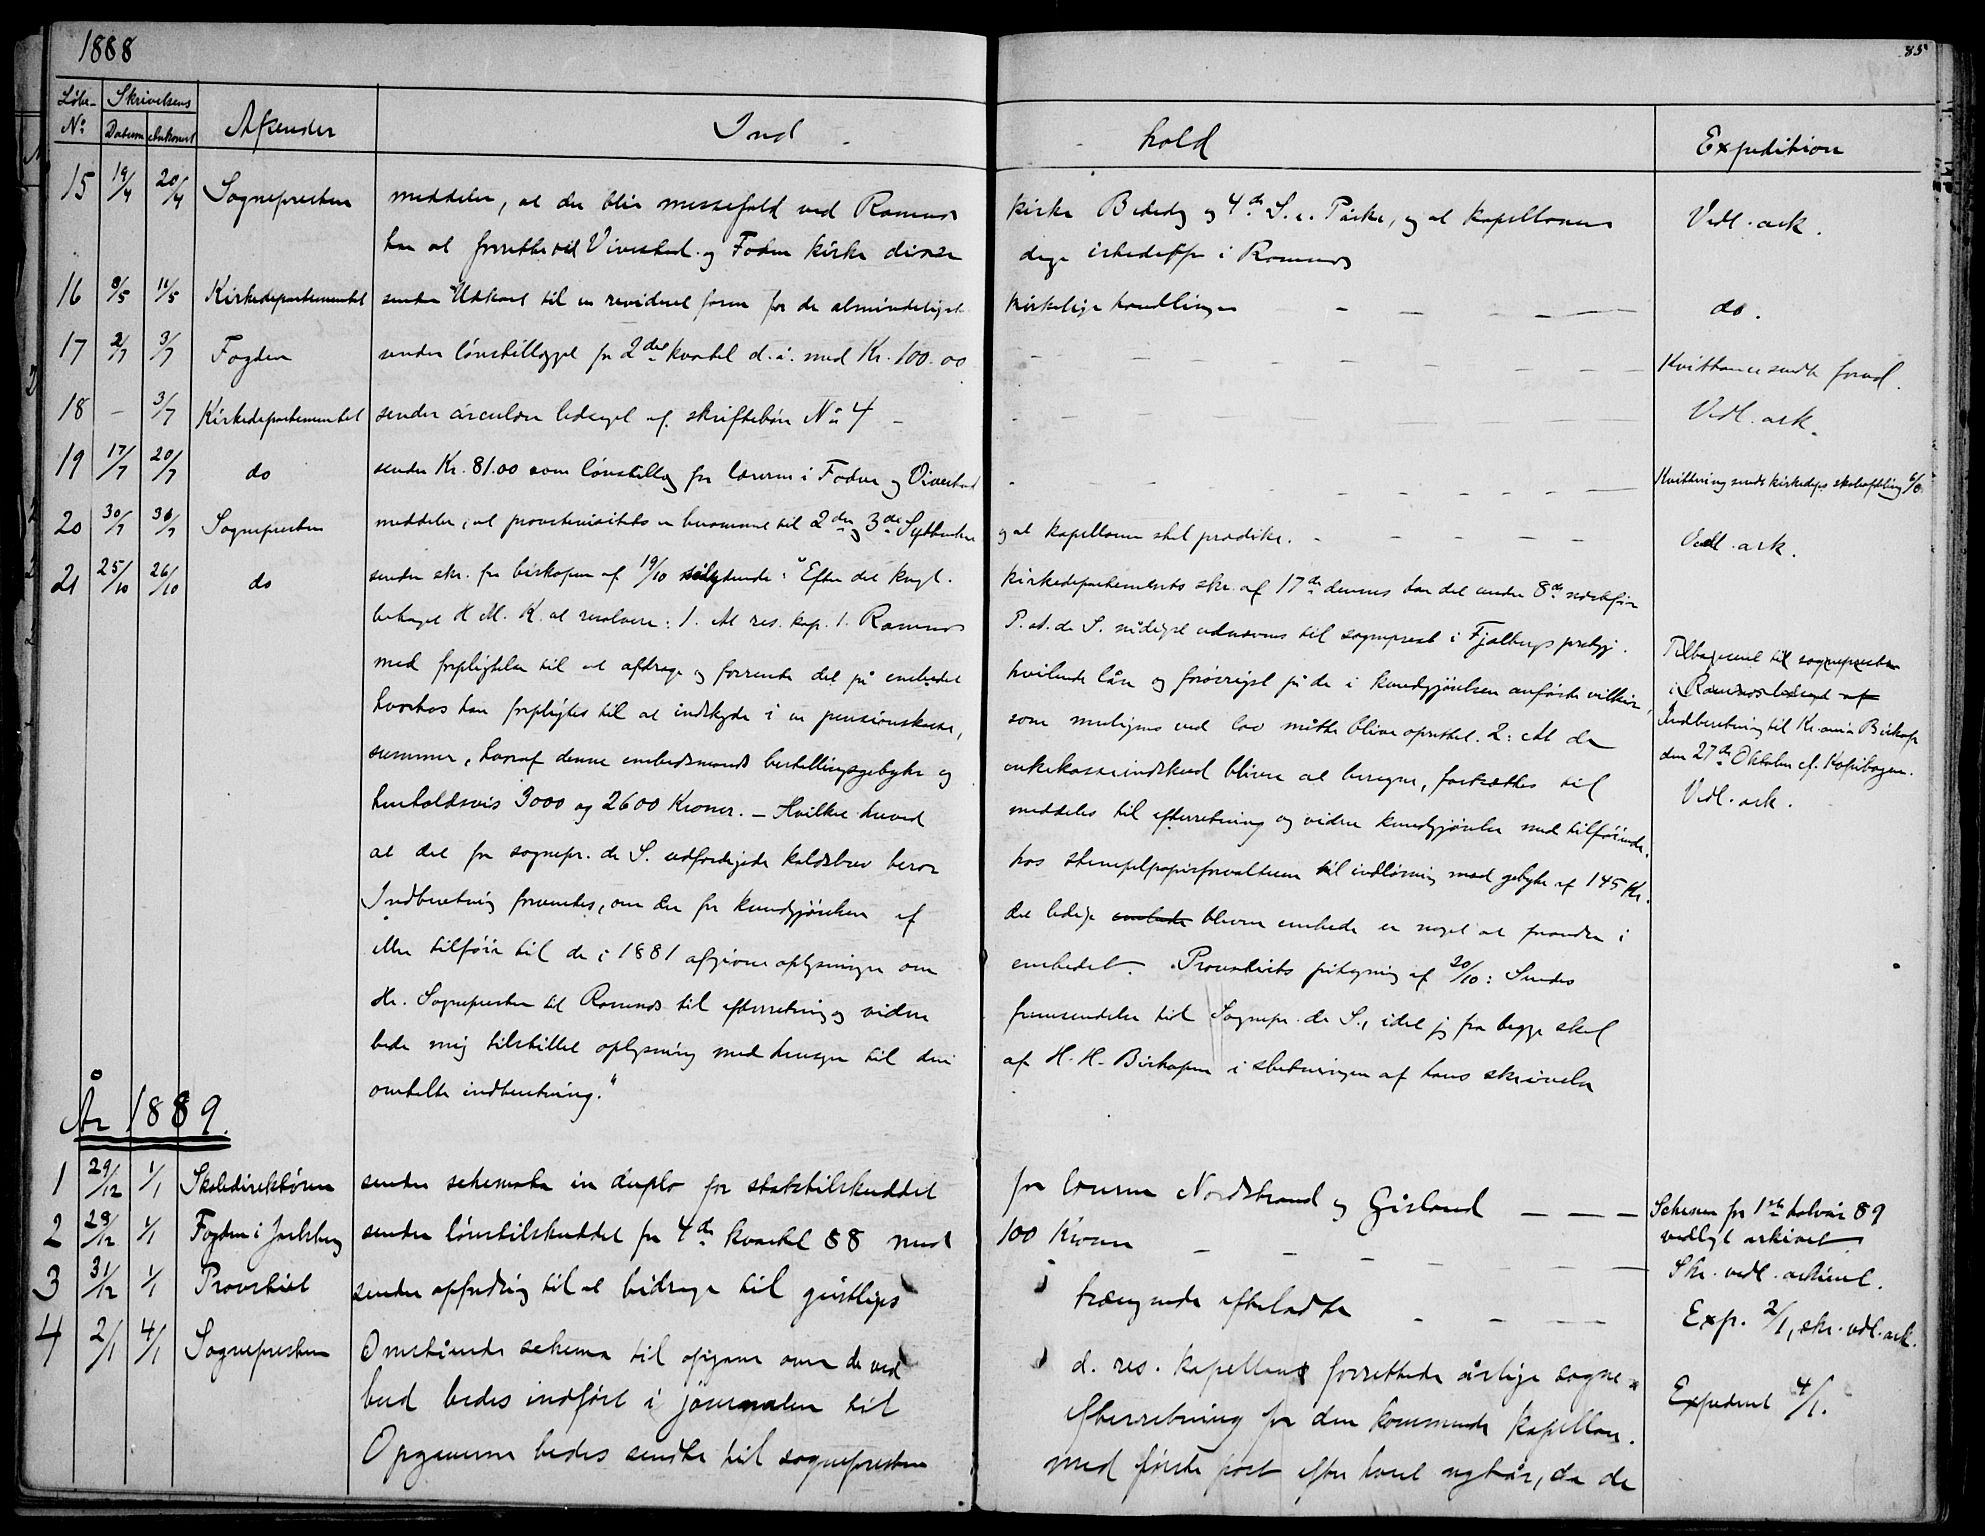 1888
85
Løbe- Skrivelsens
No Datum Ankomst Afsender Ind hold Expedition
15 19/4 20/4 Sognepresten meddeler, at der blir messefald ved Ramnes kirke Bededag og 4de S. e. Påske, og at kapellanen Vedl. ark.
har at forrette ved Vivestad og Fodne kirke disse dage i Ramnes
16 8/5 11/5 Kirkedepartementet sender "Udkast til en revideret form for de almindeligste kirkelige handlinger do.
17 2/7 3/7 Fogden sender lønstillægget for 2det kvartal d. å. med Kr. 100.00 Kvittance sendt forud.
18 - 3/7 Kirkedepartementet sender circulære ledsaget af skriftebøn No 4 Vedl. ark.
19 17/7 20/7 do sender Kr. 81.00 som lønstillæg for lærerne i Fodne og Vivestad Kvittering sendt kirkedeps skoleafdeling
20 30/7 30/7 Sognepresten meddeler, at provstevisitats er berammet til 2den og 3die September og at kapellanen skal prædike. Vedl. ark.
21 25/10 26/10 do sender skr. fra biskopen af 19/10 sålydende: "Efter det kngl. kirkedepartements skr. af 17de dennes har det under 8de næstfør
behaget H. M. K. at resolvere: 1. At res. kap. i Ramnes P. A. de S. nådigst udnævnes til sogneprest i Fjelbergs prstgj.
med forpligtelse til at afdrage og forrente det på embedet hvilende lån og forøvrigt på de i kundgjørelsen anførte vilkår,
hvorhos han forpligtes til at indskyde i en pensionskasse, som muligens ved lov måtte blive oprettet. 2: At de
summer, hvoraf denne embedsmands bestillingsgebyhr og enkekasseindskud bliver at beregne, fastsættes til
henholdsvis 3000 og 2600 Kroner. – Hvilket herved meddeles til efterretning og videre kundgjørelse med tilføiende,
at det for sognepr. de S. udfærdigede kaldsbrev beror hos stempelpapirforvalteren til indløsning med gebyhr af 145 Kr.
Indberetning forventes, om der for kundgjørelsen af det ledige embede blevne embede er noget at forandre i
eller tilføie til de i 1881 afgivne oplysninger om embedet. Provstiets påtegning af 20/10: Sendes
Hr. Sognepresten til Ramnes til efterretning og videre fremsendelse til Sognepr. de S., idet jeg fra begge skal
bede mig tilstillet oplysning med hensyn til den af H. H. Biskopen i slutningen af hans skrivelse
omtalte indberetning."
Tilbagesendt til sognepresten
i Ramnes
Indberetning til Kr.ania Biskop
den 27de Oktober cf. Kopibogen.
Vedl. ark.
År 1889.
1 29/12 1/1 Skoledirektøren sender schemata in duplo for statstilskuddet for lærerne Nordstrand og Gisland Schema for 1ste halvår 89
vedlagt arkivet
2 29/12 1/1 Fogden i Jarlsberg sender lønstilskuddet for 4de kvartal 88 med 100 Kroner
Skr. vedl. arkivet.
3 31/12 1/1 Provstiet sender opfordring til at bidrage til geistliges trængende efterladte Exp. 2/1, skr. vedl. ark.
4 2/1 4/1 Sognepresten Omstående schema til opgave over de ved d. res. kapellans forrettede årlige sogne- Expederet 4/1.
bud bedes indført i journalen til efterretning for den kommende kapellan.
Opgaverne bedes sendte til sognepresten med første post efter hvert nytår, da de